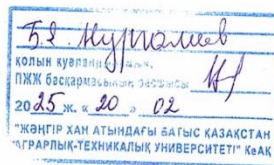 Б.Я. Нургалиев
қолын куәландырамын.
ПЖЖ басқармасының басшысы
2025 ж. « 20 » 02
"ЖӘҢГІР ХАН АТЫНДАҒЫ БАТЫС ҚАЗАҚСТАН
АГРАРЛЫҚ-ТЕХНИКАЛЫҚ УНИВЕРСИТЕТІ" КеАҚ